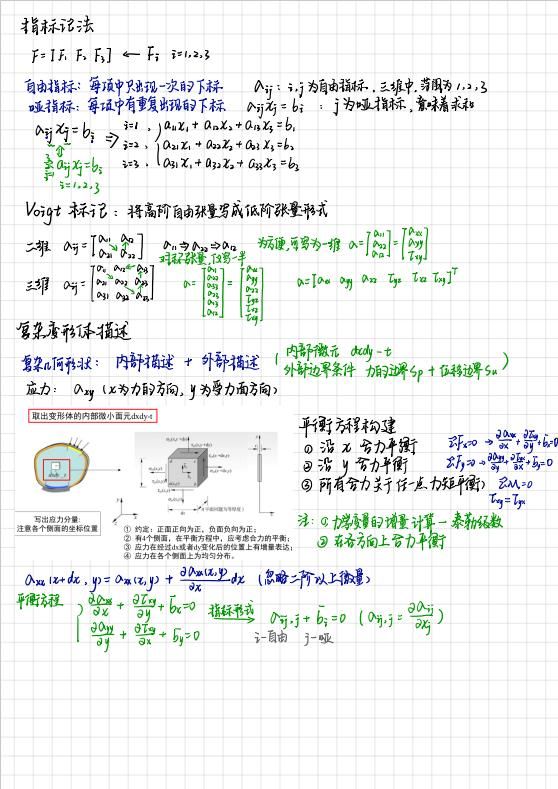 指标记法
F = [F₁ F₂ F₃] ← Fᵢ i=1,2,3
自由指标：每项中只出现一次的下标 aᵢⱼ：i,j为自由指标，三维中，范围为1,2,3
哑指标：每项中有重复出现的下标 aᵢⱼxⱼ=bᵢ：j为哑指标，意味着求和
aᵢⱼxⱼ=bᵢ ⇒ i=1, a₁₁x₁+a₁₂x₂+a₁₃x₃=b₁
i=2, a₂₁x₁+a₂₂x₂+a₂₃x₃=b₂
i=3, a₃₁x₁+a₃₂x₂+a₃₃x₃=b₃
aᵢⱼxⱼ=bᵢ
i=1,2,3
Voigt 标记：将高阶自由张量写成低阶张量形式
二维 aᵢⱼ=[a₁₁ a₁₂ a₂₁ a₂₂] a₁₁→a₂₂→a₁₂ 为方便，可写为一维 a=[a₁₁ a₂₂ a₁₂]=[aₓₓ aᵧᵧ τₓᵧ]
对称张量，仅写一半
三维 aᵢⱼ=[a₁₁ a₁₂ a₁₃ a₂₁ a₂₂ a₂₃ a₃₁ a₃₂ a₃₃]
复杂变形体描述
复杂几何形状：内部描述 + 外部描述
内部微元 dxdy·t
外部边界条件 力的边界Sp + 位移边界Su
应力：aₓᵧ（x为力的方向，y为受力面方向）
取出变形体的内部微小面元dxdy·t
写出应力分量:
注意各个侧面的坐标位置
① 约定：正面正向为正，负面负向为正；
② 有4个侧面，在平衡方程中，应考虑合力的平衡；
③ 应力在经过dx或者dy变化后的位置上有增量表达；
④ 应力在各个侧面上为均匀分布.
平衡方程构建
① 沿 x 合力平衡 ΣFₓ=0 → ∂aₓₓ/∂x+∂τₓᵧ/∂y+b̄ₓ=0
② 沿 y 合力平衡
③ 所有合力关于任一点力矩平衡 ΣM₀=0
τₓᵧ=τᵧₓ
注：① 力学变量的增量计算—泰勒级数
② 在各方向上合力平衡
aₓₓ(x+dx,y)=aₓₓ(x,y)+∂aₓₓ(x,y)/∂x dx（忽略二阶以上微量）
平衡方程 ∂aₓₓ/∂x+∂τₓᵧ/∂y+b̄ₓ=0
∂aᵧᵧ/∂y+∂τₓᵧ/∂x+b̄ᵧ=0
指标形式 aᵢⱼ,ⱼ+b̄ᵢ=0 (aᵢⱼ,ⱼ=∂aᵢⱼ/∂xⱼ)
i-自由 j-哑